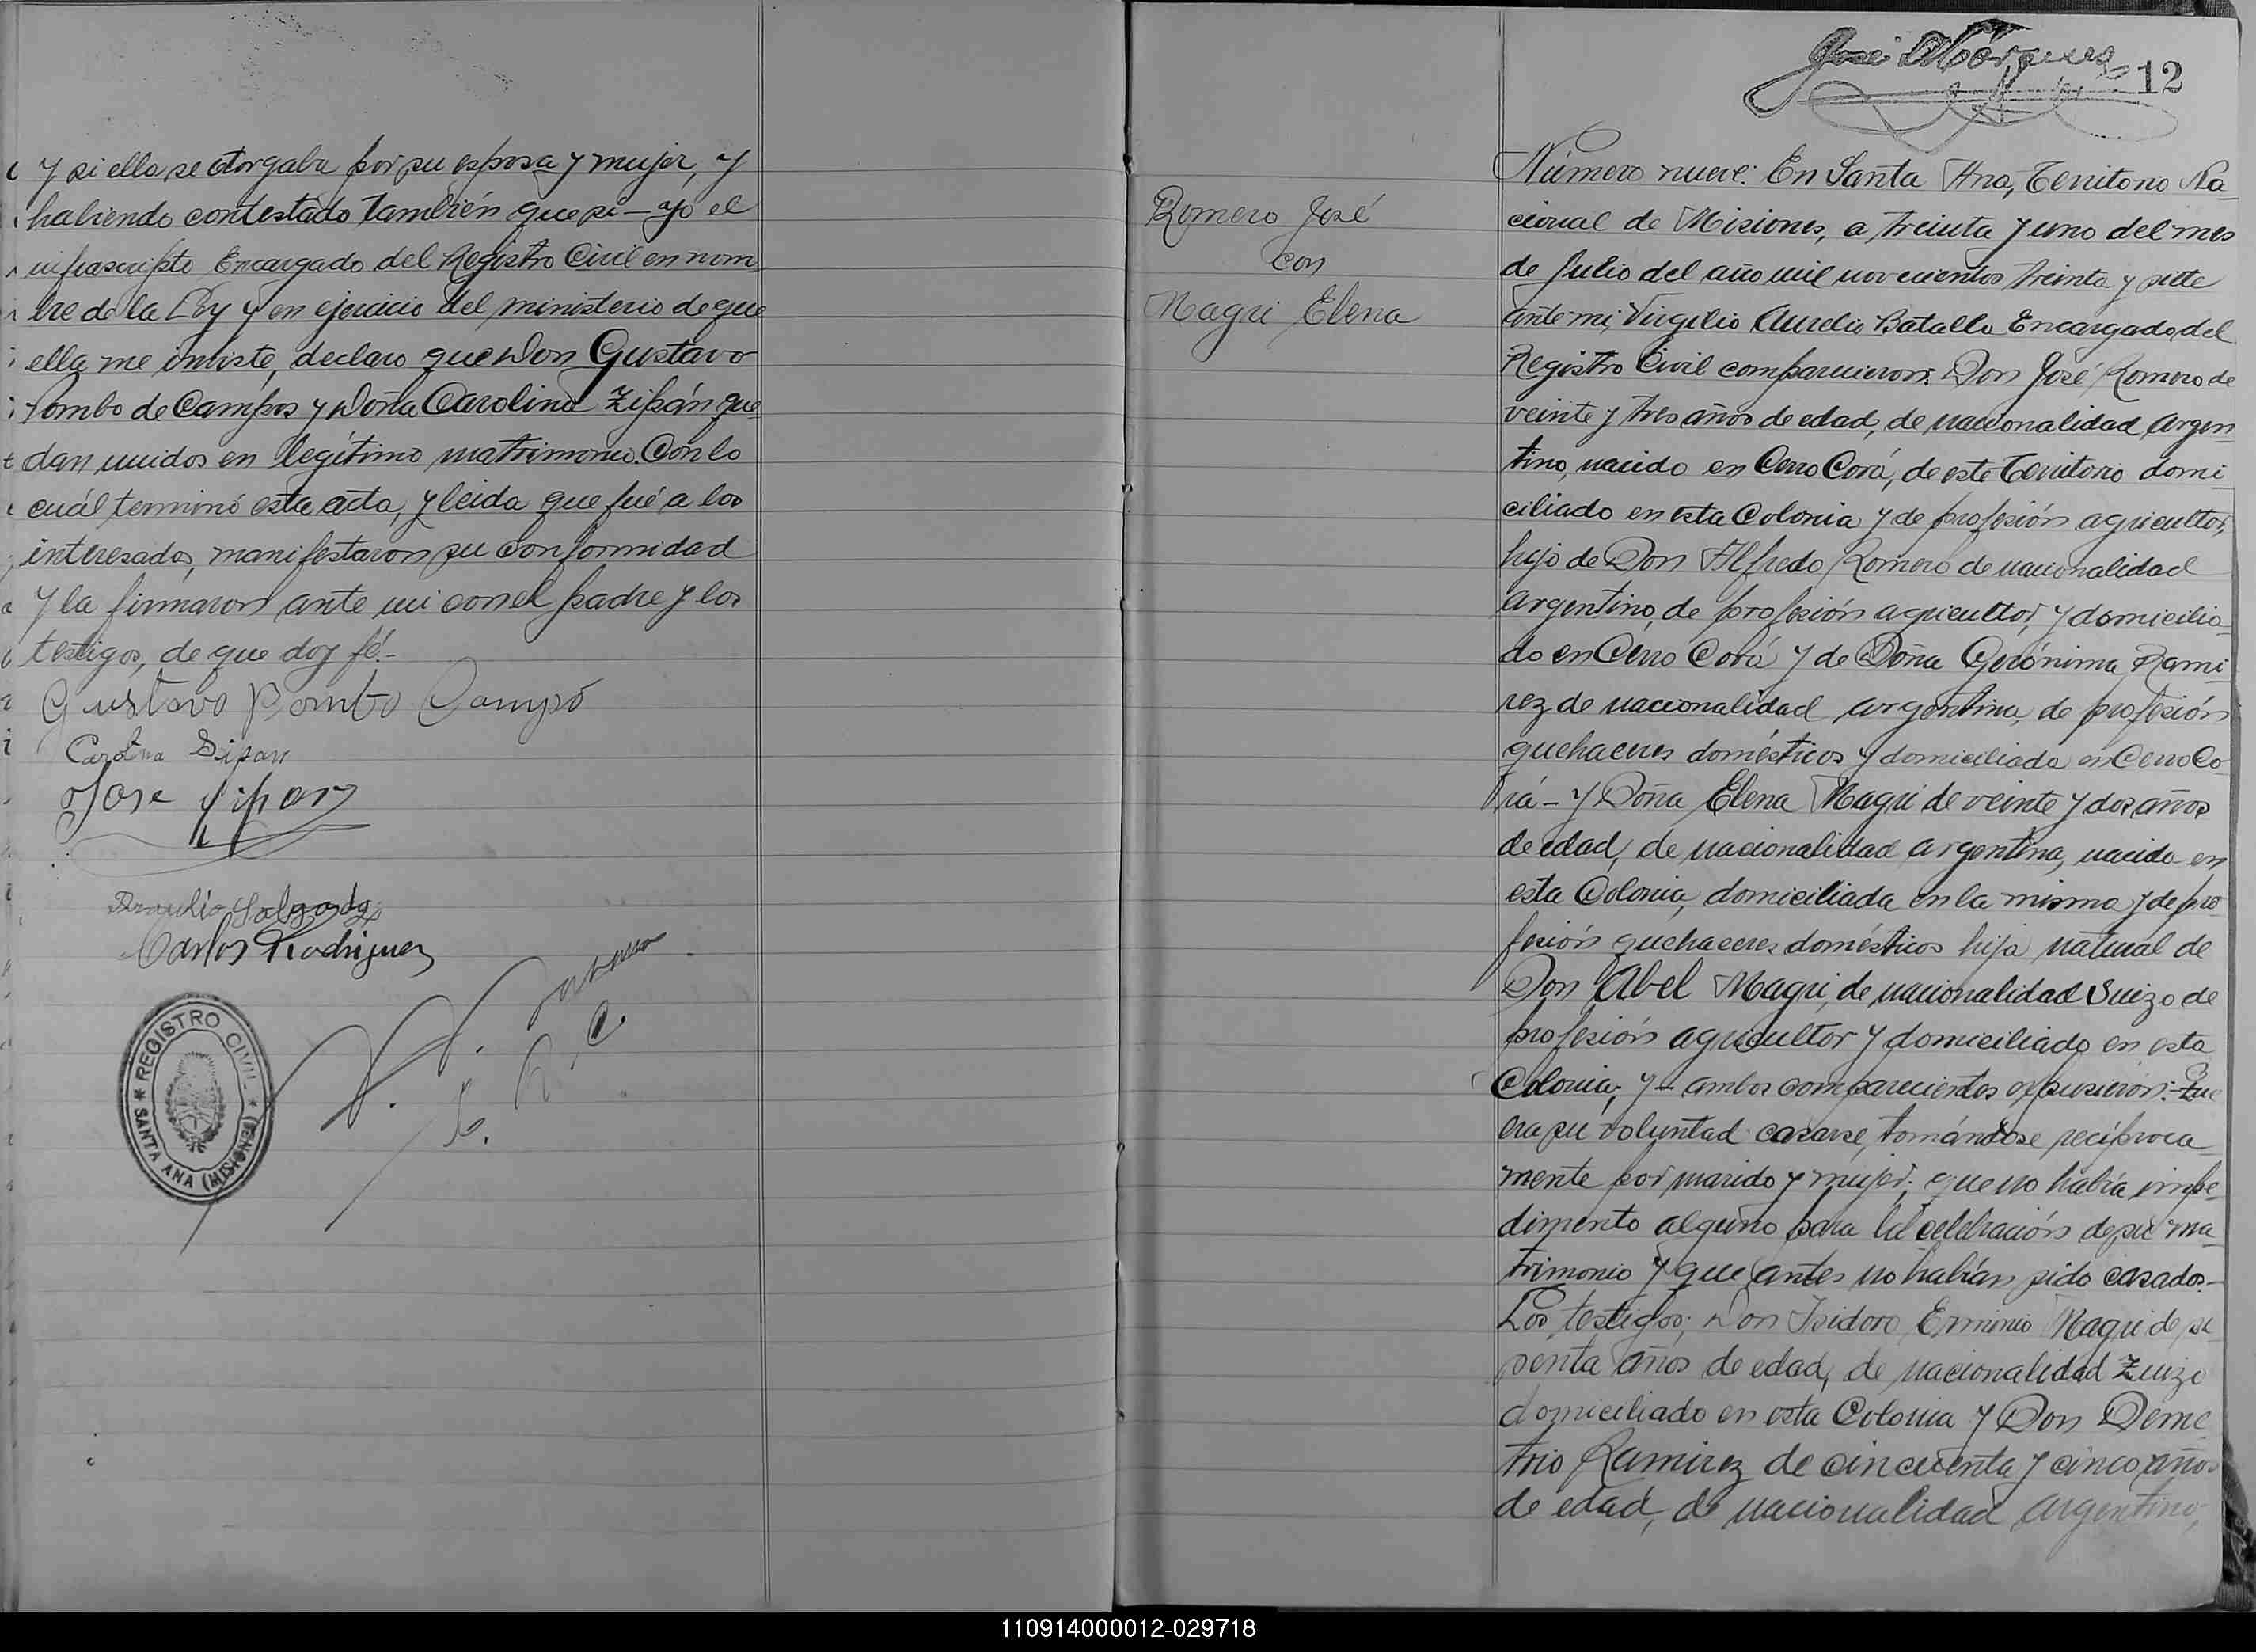 y si ella se otorgaba por su esposa y mujer, y
habiendo contestado también que si - yo el
infrascripto Encargado del Registro Civil en nom
bre de la Ley y en ejercicio del ministerio de que
ella me inviste, declaro que Don Gustavo
Pombo de Campos y Doña Carolina Zipán que
dan unidos en legítimo matrimonio. Con lo
cuál terminó esta acta, y leida que fué a los
interesados, manifestaron su conformidad
y la firmaron ante mi con el padre y los
testigos, de que doy fé.-
Gustavo Pombo Campo
Carolina Sipan
Jose Sipan
Braulio Salgado
Carlos Rodriguez
E. R. C.
REGISTRO CIVIL
SANTA ANA (MISIONES)
José
12
Romero José
con
Magri Elena
Número nueve: En Santa Ana, Territorio Na
cional de Misiones, a treinta y uno del mes
de Julio del año mil novecientos treinta y siete
ante mi, Virgilio Aurelio Batalla Encargado del
Registro Civil comparecieron: Don José Romero de
veinte y tres años de edad, de nacionalidad Argen
tino, nacido en Cerro Corá, de este Territorio domi
ciliado en esta Colonia y de profesión agricultor,
hijo de Don Alfredo Romero de nacionalidad
Argentino, de profesión agricultor, y domicilia
do en Cerro Corá y de Doña Gerónima Rami
rez de nacionalidad argentina, de profesión
quehaceres domésticos y domiciliada en Cerro Co
rá - y Doña Elena Magri de veinte y dos años
de edad, de nacionalidad argentina, nacida en
esta Colonia, domiciliada en la misma y de pro
fesión quehaceres domésticos hija natural de
Don Abel Magri, de nacionalidad Suizo de
profesión agricultor y domiciliado en esta
Colonia; y - ambos comparecientes expusieron: - Que
era su voluntad casarse, tomándose recíproca
mente por marido y mujer; que no había impe
dimento alguno para la celebración de su ma
trimonio y que antes no habían sido casados.-
Los testigos; Don Isidoro Erminio Magri de se
senta años de edad, de nacionalidad Zuizo
domiciliado en esta Colonia y Don Deme
trio Ramirez de cincuenta y cinco años
de edad, de nacionalidad argentino,
110914000012-029718